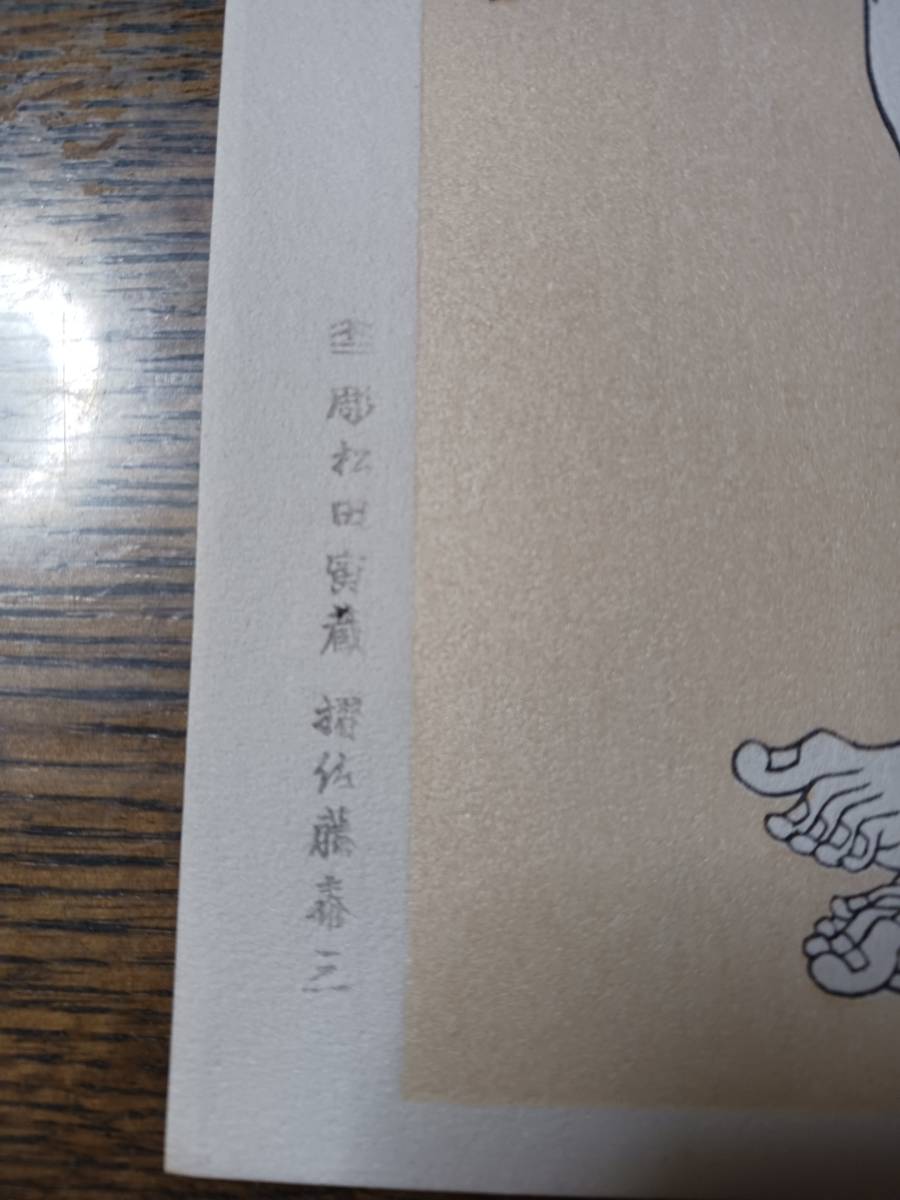 彫松田寅蔵 摺佐藤泰三